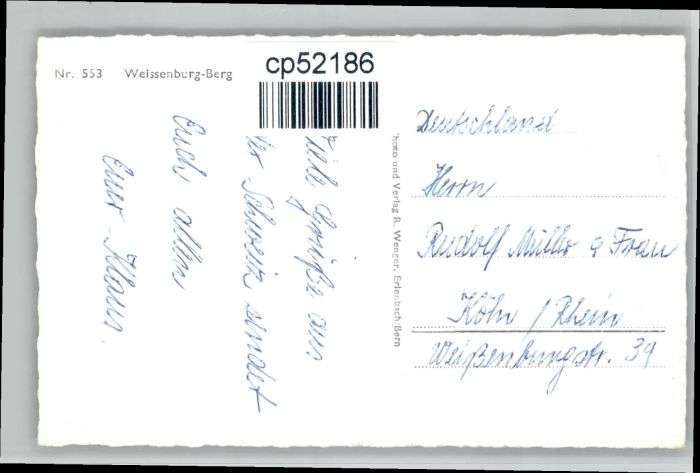 Nr. 553 Weissenburg-Berg
cp52186
Viele Grüße aus
der Schweiz sendet
Euch allen
Euer Klaus.
Photo und Verlag R. Wenger, Erlenbach/Bern
Deutschland
Herrn
Rudolf Müller & Frau
Köln / Rhein
Weißenburgstr. 39